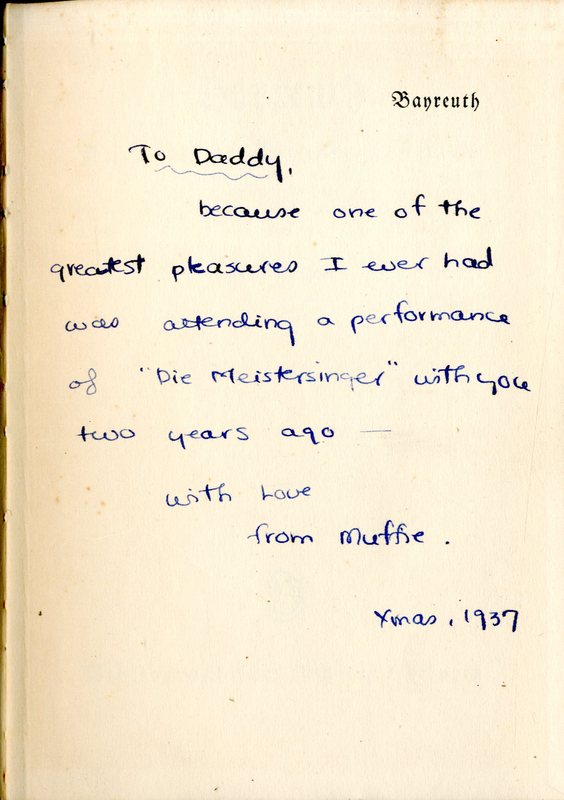 Bayreuth
To Daddy,
because one of the
greatest pleasures I ever had
was attending a performance
of "Die Meistersinger" with you
two years ago —
with Love
from Muffie.
Xmas, 1937